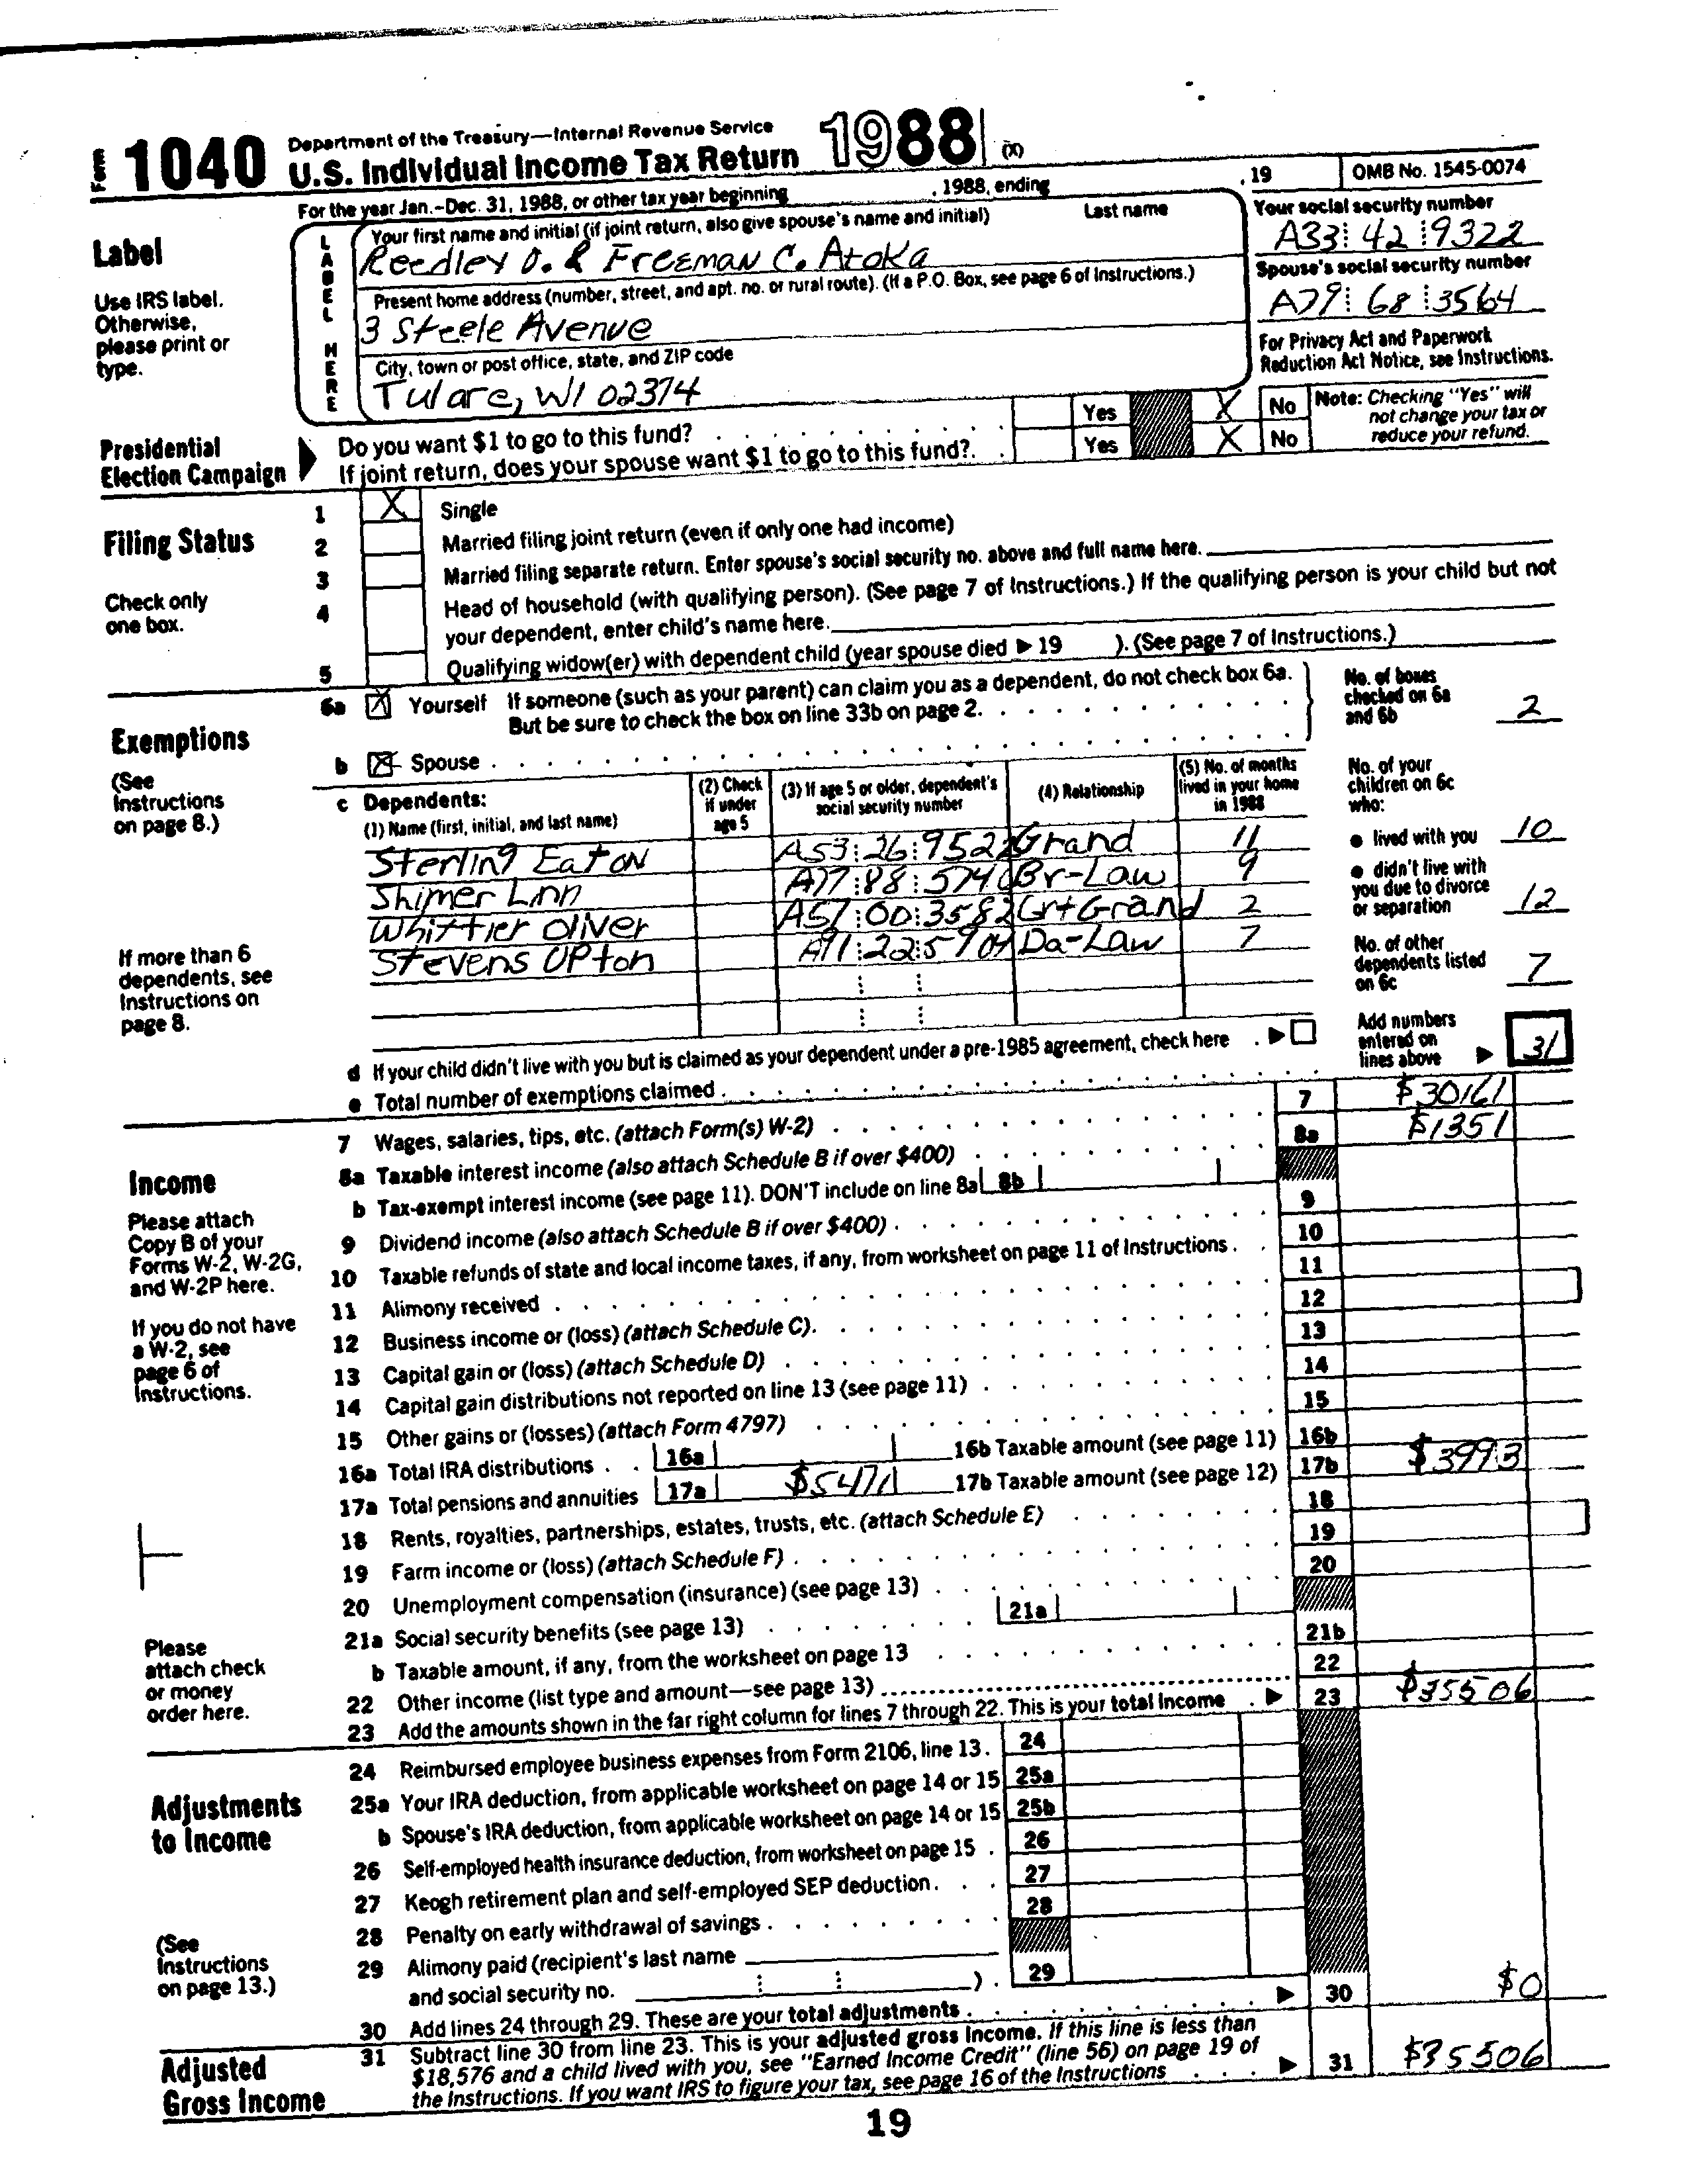 Form 1040 Department of the Treasury—Internal Revenue Service
U.S. Individual Income Tax Return 1988 (X)
For the year Jan.-Dec. 31, 1988, or other tax year beginning , 1988, ending , 19 OMB No. 1545-0074
Label
Use IRS label.
Otherwise,
please print or
type.
LABEL HERE
Your first name and initial (if joint return, also give spouse's name and initial) Last name
Reedley O. & Freeman C. Atoka
Present home address (number, street, and apt. no. or rural route). (If a P.O. Box, see page 6 of Instructions.)
3 Steele Avenue
City, town or post office, state, and ZIP code
Tulare, WI 02374
Your social security number
A33 42 9322
Spouse's social security number
A79 68 3564
For Privacy Act and Paperwork
Reduction Act Notice, see Instructions.
Presidential
Election Campaign
Do you want $1 to go to this fund? Yes X No
If joint return, does your spouse want $1 to go to this fund? Yes X No
Note: Checking "Yes" will
not change your tax or
reduce your refund.
Filing Status
Check only
one box.
1 X Single
2 Married filing joint return (even if only one had income)
3 Married filing separate return. Enter spouse's social security no. above and full name here.
4 Head of household (with qualifying person). (See page 7 of Instructions.) If the qualifying person is your child but not
your dependent, enter child's name here.
5 Qualifying widow(er) with dependent child (year spouse died ▶ 19 ). (See page 7 of Instructions.)
Exemptions
(See
Instructions
on page 8.)
6a X Yourself If someone (such as your parent) can claim you as a dependent, do not check box 6a.
But be sure to check the box on line 33b on page 2.
b X Spouse
No. of boxes
checked on 6a
and 6b 2
c Dependents:
(1) Name (first, initial, and last name)
(2) Check
if under
age 5
(3) If age 5 or older, dependent's
social security number
(4) Relationship
(5) No. of months
lived in your home
in 1988
Sterling Eaton A53 26 9522 Grand 11
Shimer Linn A77 88 5740 Br-Law 9
Whittier Oliver A57 00 3582 Grt Grand 2
Stevens Upton A91 22 5904 Da-Law 7
If more than 6
dependents, see
Instructions on
page 8.
No. of your
children on 6c
who:
● lived with you 10
● didn't live with
you due to divorce
or separation 12
No. of other
dependents listed
on 6c 7
d If your child didn't live with you but is claimed as your dependent under a pre-1985 agreement, check here ▶
e Total number of exemptions claimed
Add numbers
entered on
lines above ▶ 31
Income
Please attach
Copy B of your
Forms W-2, W-2G,
and W-2P here.
If you do not have
a W-2, see
page 6 of
Instructions.
Please
attach check
or money
order here.
7 Wages, salaries, tips, etc. (attach Form(s) W-2) 7 $30161
8a Taxable interest income (also attach Schedule B if over $400) 8a $1351
b Tax-exempt interest income (see page 11). DON'T include on line 8a 8b
9 Dividend income (also attach Schedule B if over $400) 9
10 Taxable refunds of state and local income taxes, if any, from worksheet on page 11 of Instructions 10
11 Alimony received 11
12 Business income or (loss) (attach Schedule C) 12
13 Capital gain or (loss) (attach Schedule D) 13
14 Capital gain distributions not reported on line 13 (see page 11) 14
15 Other gains or (losses) (attach Form 4797) 15
16a Total IRA distributions 16a 16b Taxable amount (see page 11) 16b
17a Total pensions and annuities 17a $5471 17b Taxable amount (see page 12) 17b $3993
18 Rents, royalties, partnerships, estates, trusts, etc. (attach Schedule E) 18
19 Farm income or (loss) (attach Schedule F) 19
20 Unemployment compensation (insurance) (see page 13) 20
21a Social security benefits (see page 13) 21a
b Taxable amount, if any, from the worksheet on page 13 21b
22 Other income (list type and amount—see page 13) 22
23 Add the amounts shown in the far right column for lines 7 through 22. This is your total income ▶ 23 $35506
Adjustments
to Income
(See
Instructions
on page 13.)
24 Reimbursed employee business expenses from Form 2106, line 13. 24
25a Your IRA deduction, from applicable worksheet on page 14 or 15 25a
b Spouse's IRA deduction, from applicable worksheet on page 14 or 15 25b
26 Self-employed health insurance deduction, from worksheet on page 15 26
27 Keogh retirement plan and self-employed SEP deduction 27
28 Penalty on early withdrawal of savings 28
29 Alimony paid (recipient's last name
and social security no. ) 29
30 Add lines 24 through 29. These are your total adjustments ▶ 30 $0
Adjusted
Gross Income
31 Subtract line 30 from line 23. This is your adjusted gross income. If this line is less than
$18,576 and a child lived with you, see "Earned Income Credit" (line 56) on page 19 of
the Instructions. If you want IRS to figure your tax, see page 16 of the Instructions ▶ 31 $35506
19